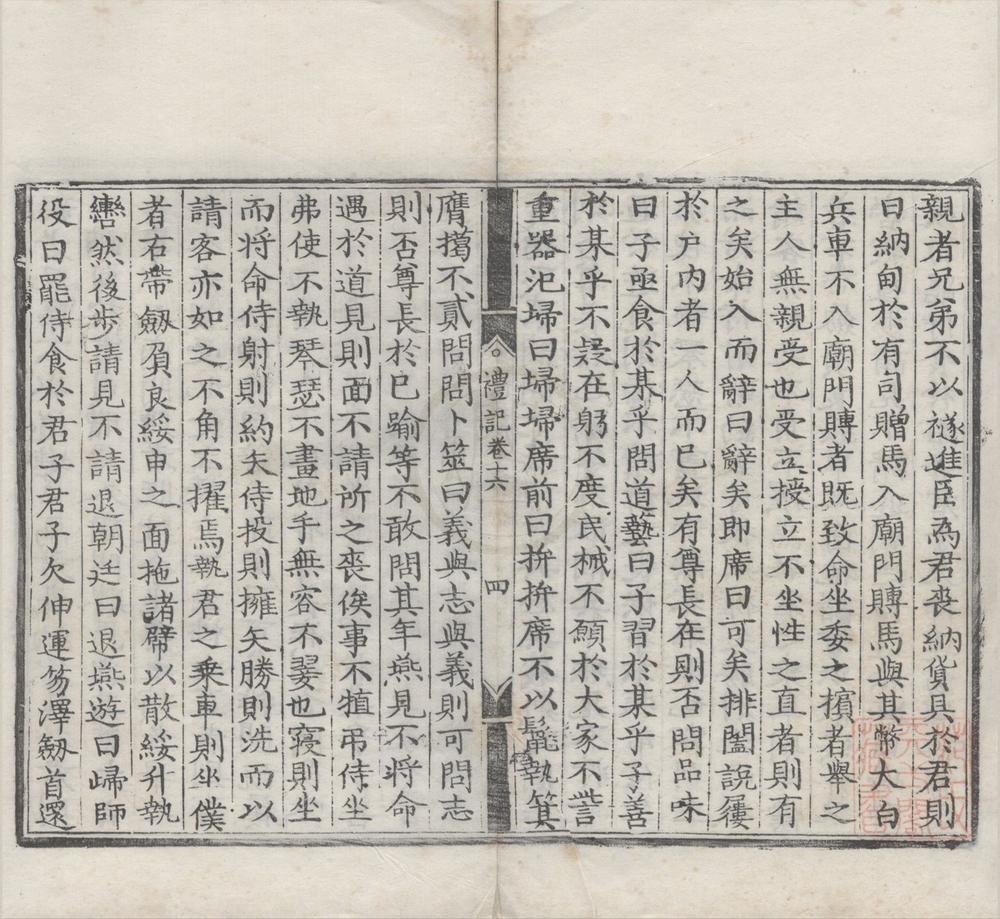 親者兄弟不以襚進臣為君喪納貨貝於君則
曰納甸於有司贈馬入廟門賻馬與其幣大白
兵車不入廟門賻者既致命坐委之擯者舉之
主人無親受也受立授立不坐性之直者則有
之矣始入而辭曰辭矣即席曰可矣排闔說屨
於户內者一人而已矣有尊長在則否問品味
曰子亟食於某乎問道藝曰子習於某乎子善
於某乎不疑在躬不度民械不願於大家不訾
重器氾埽曰埽埽席前曰拚拚席不以鬛執箕
膺擖不貳問問卜筮曰義與志與義則可問志
則否尊長於已踰等不敢問其年燕見不將命
遇於道見則面不請所之喪俟事不犆弔侍坐
弗使不執琴瑟不畫地手無容不翣也寢則坐
而将命侍射則約矢侍投則擁矢勝則洗而以
請客亦如之不角不擢馬執君之乗車則坐僕
者右帶劔負良綏申之面拖諸幦以散綏升執
轡然後步請見不請退朝廷曰退燕遊曰歸師
役曰罷侍食於君子君子欠伸運笏澤劔首還
禮記卷十六
四